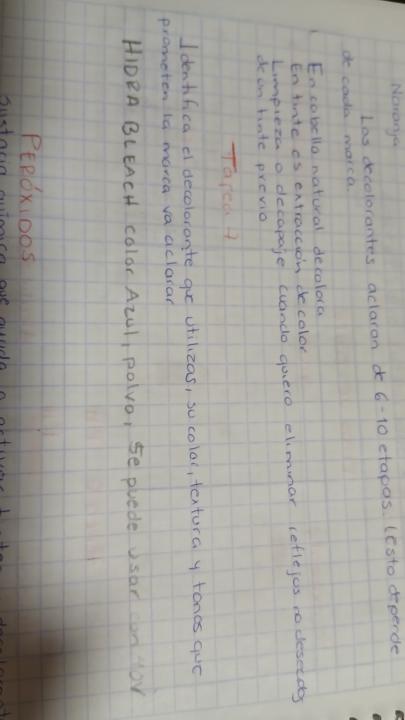 Naranja
Los decolorantes aclaran de 6-10 etapas. (esto depende
de cada marca.
En cabello natural decolora
En tinte es extracción de color
Limpieza o decapaje cuando quiero eliminar reflejos no deseados
de un tinte previo
Tarea 7
Identifica el decolorante que utilizas, su color, textura y tonos que
prometen la marca va aclarar
HIDRA BLEACH color Azul, polvo, se puede usar con 40V
PERÓXIDOS
Sustancia química que ayuda a activar